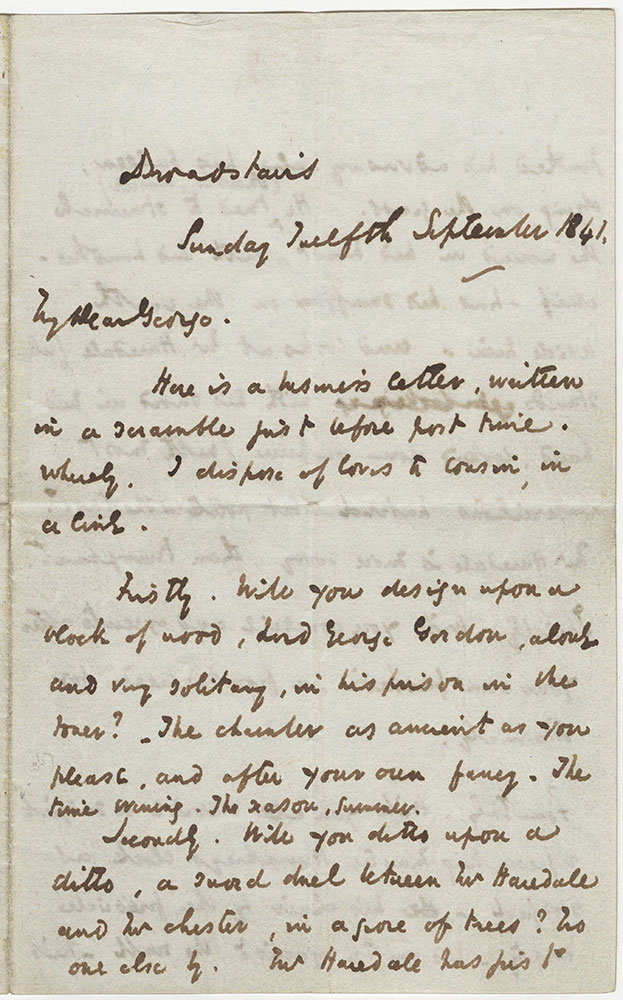 Broadstairs
Sunday Twelfth September 1841.
My Dear George.
Here is a business letter, written
in a scramble just before post time.
whereby I dispose of loves to cousin, in
a line.
Firstly. Will you design upon a
block of wood, Lord George Gordon, alone
and very solitary, in his prison in the
Tower? The chamber as ancient as you
please, and after your own fancy. The
time evening. The season, Summer.
Secondly. Will you ditto upon a
ditto, a sword duel between Mr Haredale
and Mr Chester, in a grove of trees? No
one else by. Mr Haredale has just